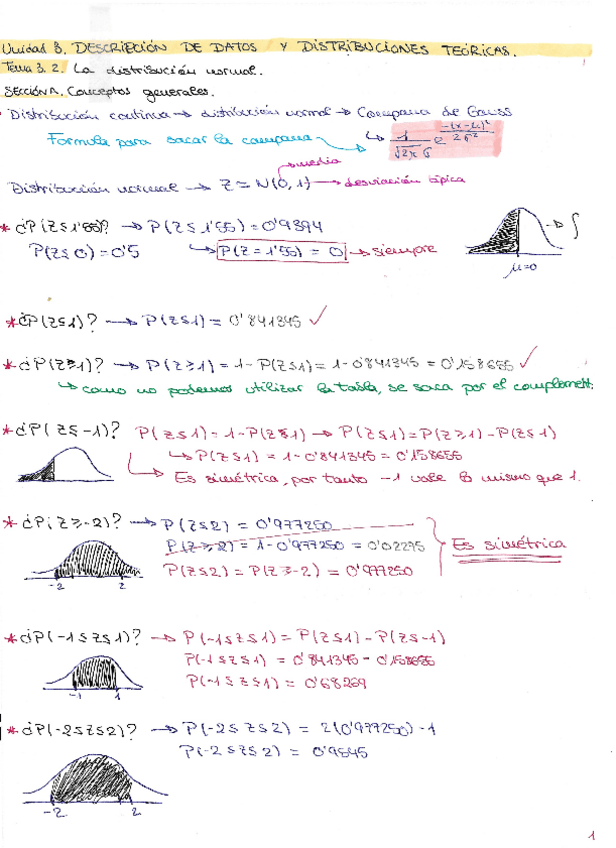 Unidad 3. DESCRIPCIÓN DE DATOS Y DISTRIBUCIONES TEÓRICAS.
Tema 3.2. La distribución normal.
SECCIÓN A. Conceptos generales.
Distribución continua → distribución normal → Campana de Gauss
Formula para sacar la campana → 1/(√2π σ) e^(-(x-μ)²/2σ²)
media
Distribución normal → Z = N(0,1) → desviación típica
* ¿P(Z≤1'55)? → P(Z≤1'55) = 0'9394
P(Z≤0) = 0'5 → P(Z = 1'55) = 0 → siempre
∫
μ=0
* ¿P(Z≤1)? → P(Z≤1) = 0'841345 ✓
* ¿P(Z≥1)? → P(Z≥1) = 1 - P(Z≤1) = 1 - 0'841345 = 0'158655 ✓
↳ como no podemos utilizar la tabla, se saca por el complement.
* ¿P(Z≤-1)? P(Z≤1) = 1 - P(Z≤1) → P(Z≤1) = P(Z≥1) - P(Z≤1)
↳ P(Z≤1) = 1 - 0'841345 = 0'158655
↳ Es simétrica, por tanto -1 vale lo mismo que 1.
* ¿P(Z≥-2)? → P(Z≤2) = 0'977250
P(Z≥2) = 1 - 0'977250 = 0'02275
Es simétrica
P(Z≤2) = P(Z≥-2) = 0'977250
-2 2
* ¿P(-1≤Z≤1)? → P(-1≤Z≤1) = P(Z≤1) - P(Z≤-1)
P(-1≤Z≤1) = 0'841345 - 0'158655
P(-1≤Z≤1) = 0'68269
-1 1
* ¿P(-2≤Z≤2)? → P(-2≤Z≤2) = 2(0'977250) - 1
P(-2≤Z≤2) = 0'9545
-2 2
1